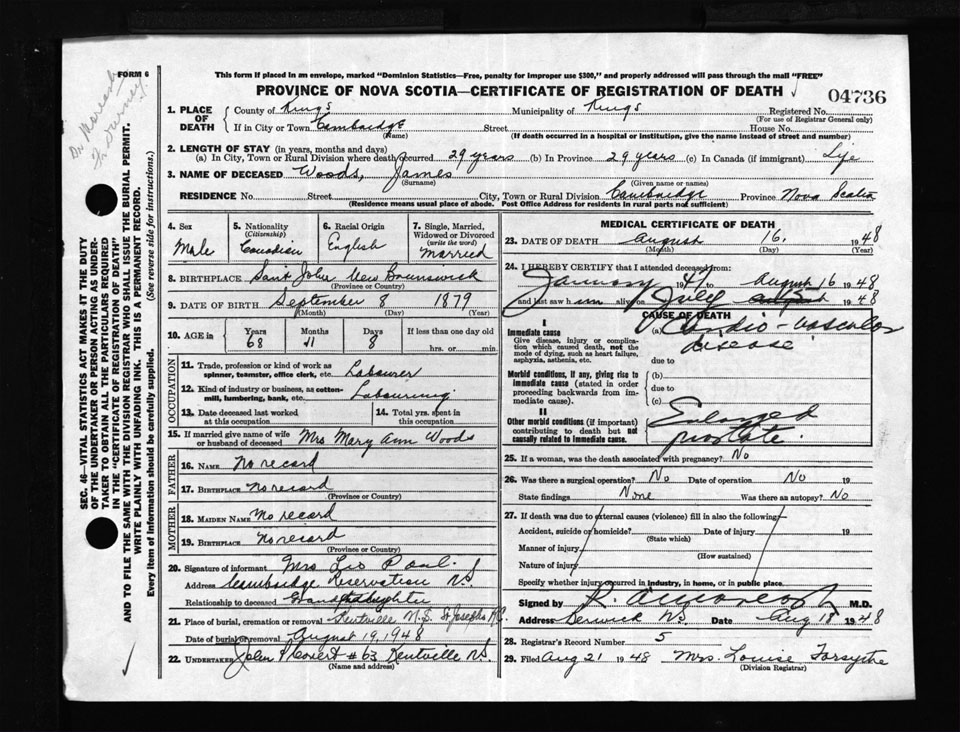 FORM 6
This form if placed in an envelope, marked "Dominion Statistics—Free, penalty for improper use $300," and properly addressed will pass through the mail "FREE"
PROVINCE OF NOVA SCOTIA—CERTIFICATE OF REGISTRATION OF DEATH ✓ 04736
1. PLACE OF DEATH County of Kings Municipality of Kings Registered No.
(For use of Registrar General only)
If in City or Town Cambridge Street House No.
(Name) (If death occurred in a hospital or institution, give the name instead of street and number)
2. LENGTH OF STAY (in years, months and days)
(a) In City, Town or Rural Division where death occurred 29 years (b) In Province 29 years (c) In Canada (if immigrant) Life
3. NAME OF DECEASED Woods, James
(Surname) (Given name or names)
RESIDENCE No. Street City, Town or Rural Division Cambridge Province Nova Scotia
(Residence means usual place of abode. Post Office Address for residents in rural parts not sufficient)
4. Sex Male
5. Nationality (Citizenship) Canadian
6. Racial Origin English
7. Single, Married, Widowed or Divorced (write the word) Married
8. BIRTHPLACE Saint John New Brunswick
(Province or Country)
9. DATE OF BIRTH September 8 1879
(Month) (Day) (Year)
10. AGE in Years 68 Months 11 Days 8 If less than one day old hrs. or min.
OCCUPATION
11. Trade, profession or kind of work as spinner, teamster, office clerk, etc. Labourer
12. Kind of industry or business, as cotton-mill, lumbering, bank, etc. Labouring
13. Date deceased last worked at this occupation
14. Total yrs. spent in this occupation
15. If married give name of wife or husband of deceased Mrs Mary Ann Woods
FATHER
16. NAME No record
17. BIRTHPLACE No record
(Province or Country)
MOTHER
18. MAIDEN NAME No record
19. BIRTHPLACE No record
(Province or Country)
20. Signature of informant Mrs Leo Paul
Address Cambridge Reservation N.S.
Relationship to deceased Granddaughter
21. Place of burial, cremation or removal Kentville N.S. St Josephs R.C.
Date of burial or removal August 19, 1948
22. UNDERTAKER John Covert #63 Kentville N.S.
(Name and address)
MEDICAL CERTIFICATE OF DEATH
23. DATE OF DEATH August 16, 1948
(Month) (Day) (Year)
24. I HEREBY CERTIFY that I attended deceased from
January 1947 to August 16 1948
and last saw him alive on July August 1948
CAUSE OF DEATH
I
Immediate cause
Give disease, injury or complication which caused death, not the mode of dying, such as heart failure, asphyxia, asthenia, etc.
(a) Cardio-vascular disease
due to
Morbid conditions, if any, giving rise to immediate cause (stated in order proceeding backwards from immediate cause).
(b)
due to
(c)
II
Other morbid conditions (if important) contributing to death but not causally related to immediate cause.
Enlarged prostate.
25. If a woman, was the death associated with pregnancy? No
26. Was there a surgical operation? No Date of operation No 19
State findings None Was there an autopsy? No
27. If death was due to external causes (violence) fill in also the following:
Accident, suicide or homicide? Date of injury 19
(State which)
Manner of injury
(How sustained)
Nature of injury
Specify whether injury occurred in industry, in home, or in public place.
Signed by M.D.
Address Berwick N.S. Date Aug 18 1948
28. Registrar's Record Number 5
29. Filed Aug 21 1948 Mrs. Louise Forsythe
(Division Registrar)
SEC. 46—VITAL STATISTICS ACT MAKES IT THE DUTY OF THE UNDERTAKER OR PERSON ACTING AS UNDERTAKER TO OBTAIN ALL THE PARTICULARS REQUIRED IN THE "CERTIFICATE OF REGISTRATION OF DEATH" AND TO FILE THE SAME WITH THE DIVISION REGISTRAR WHO SHALL ISSUE THE BURIAL PERMIT.
WRITE PLAINLY WITH UNFADING INK. THIS IS A PERMANENT RECORD.
Every item of information should be carefully supplied. (See reverse side for instructions.)